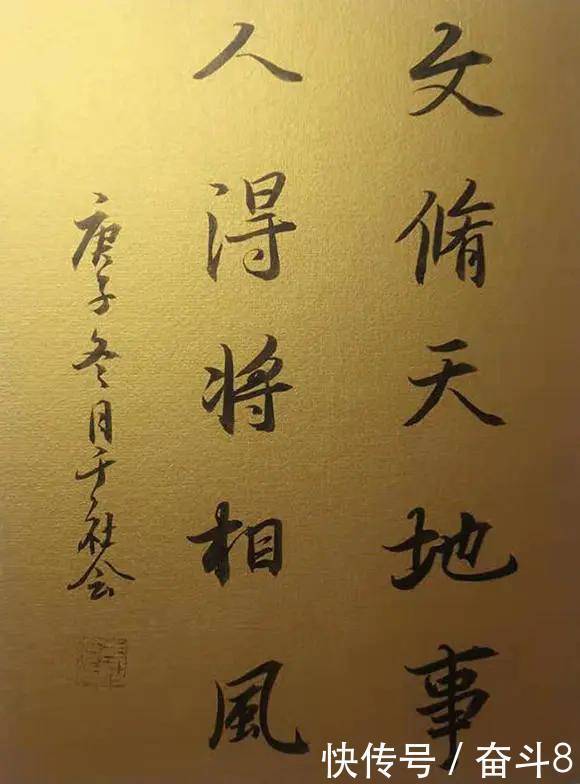 文脩天地事
人得将相風
庚子冬月于社会
快传号 / 奋斗8